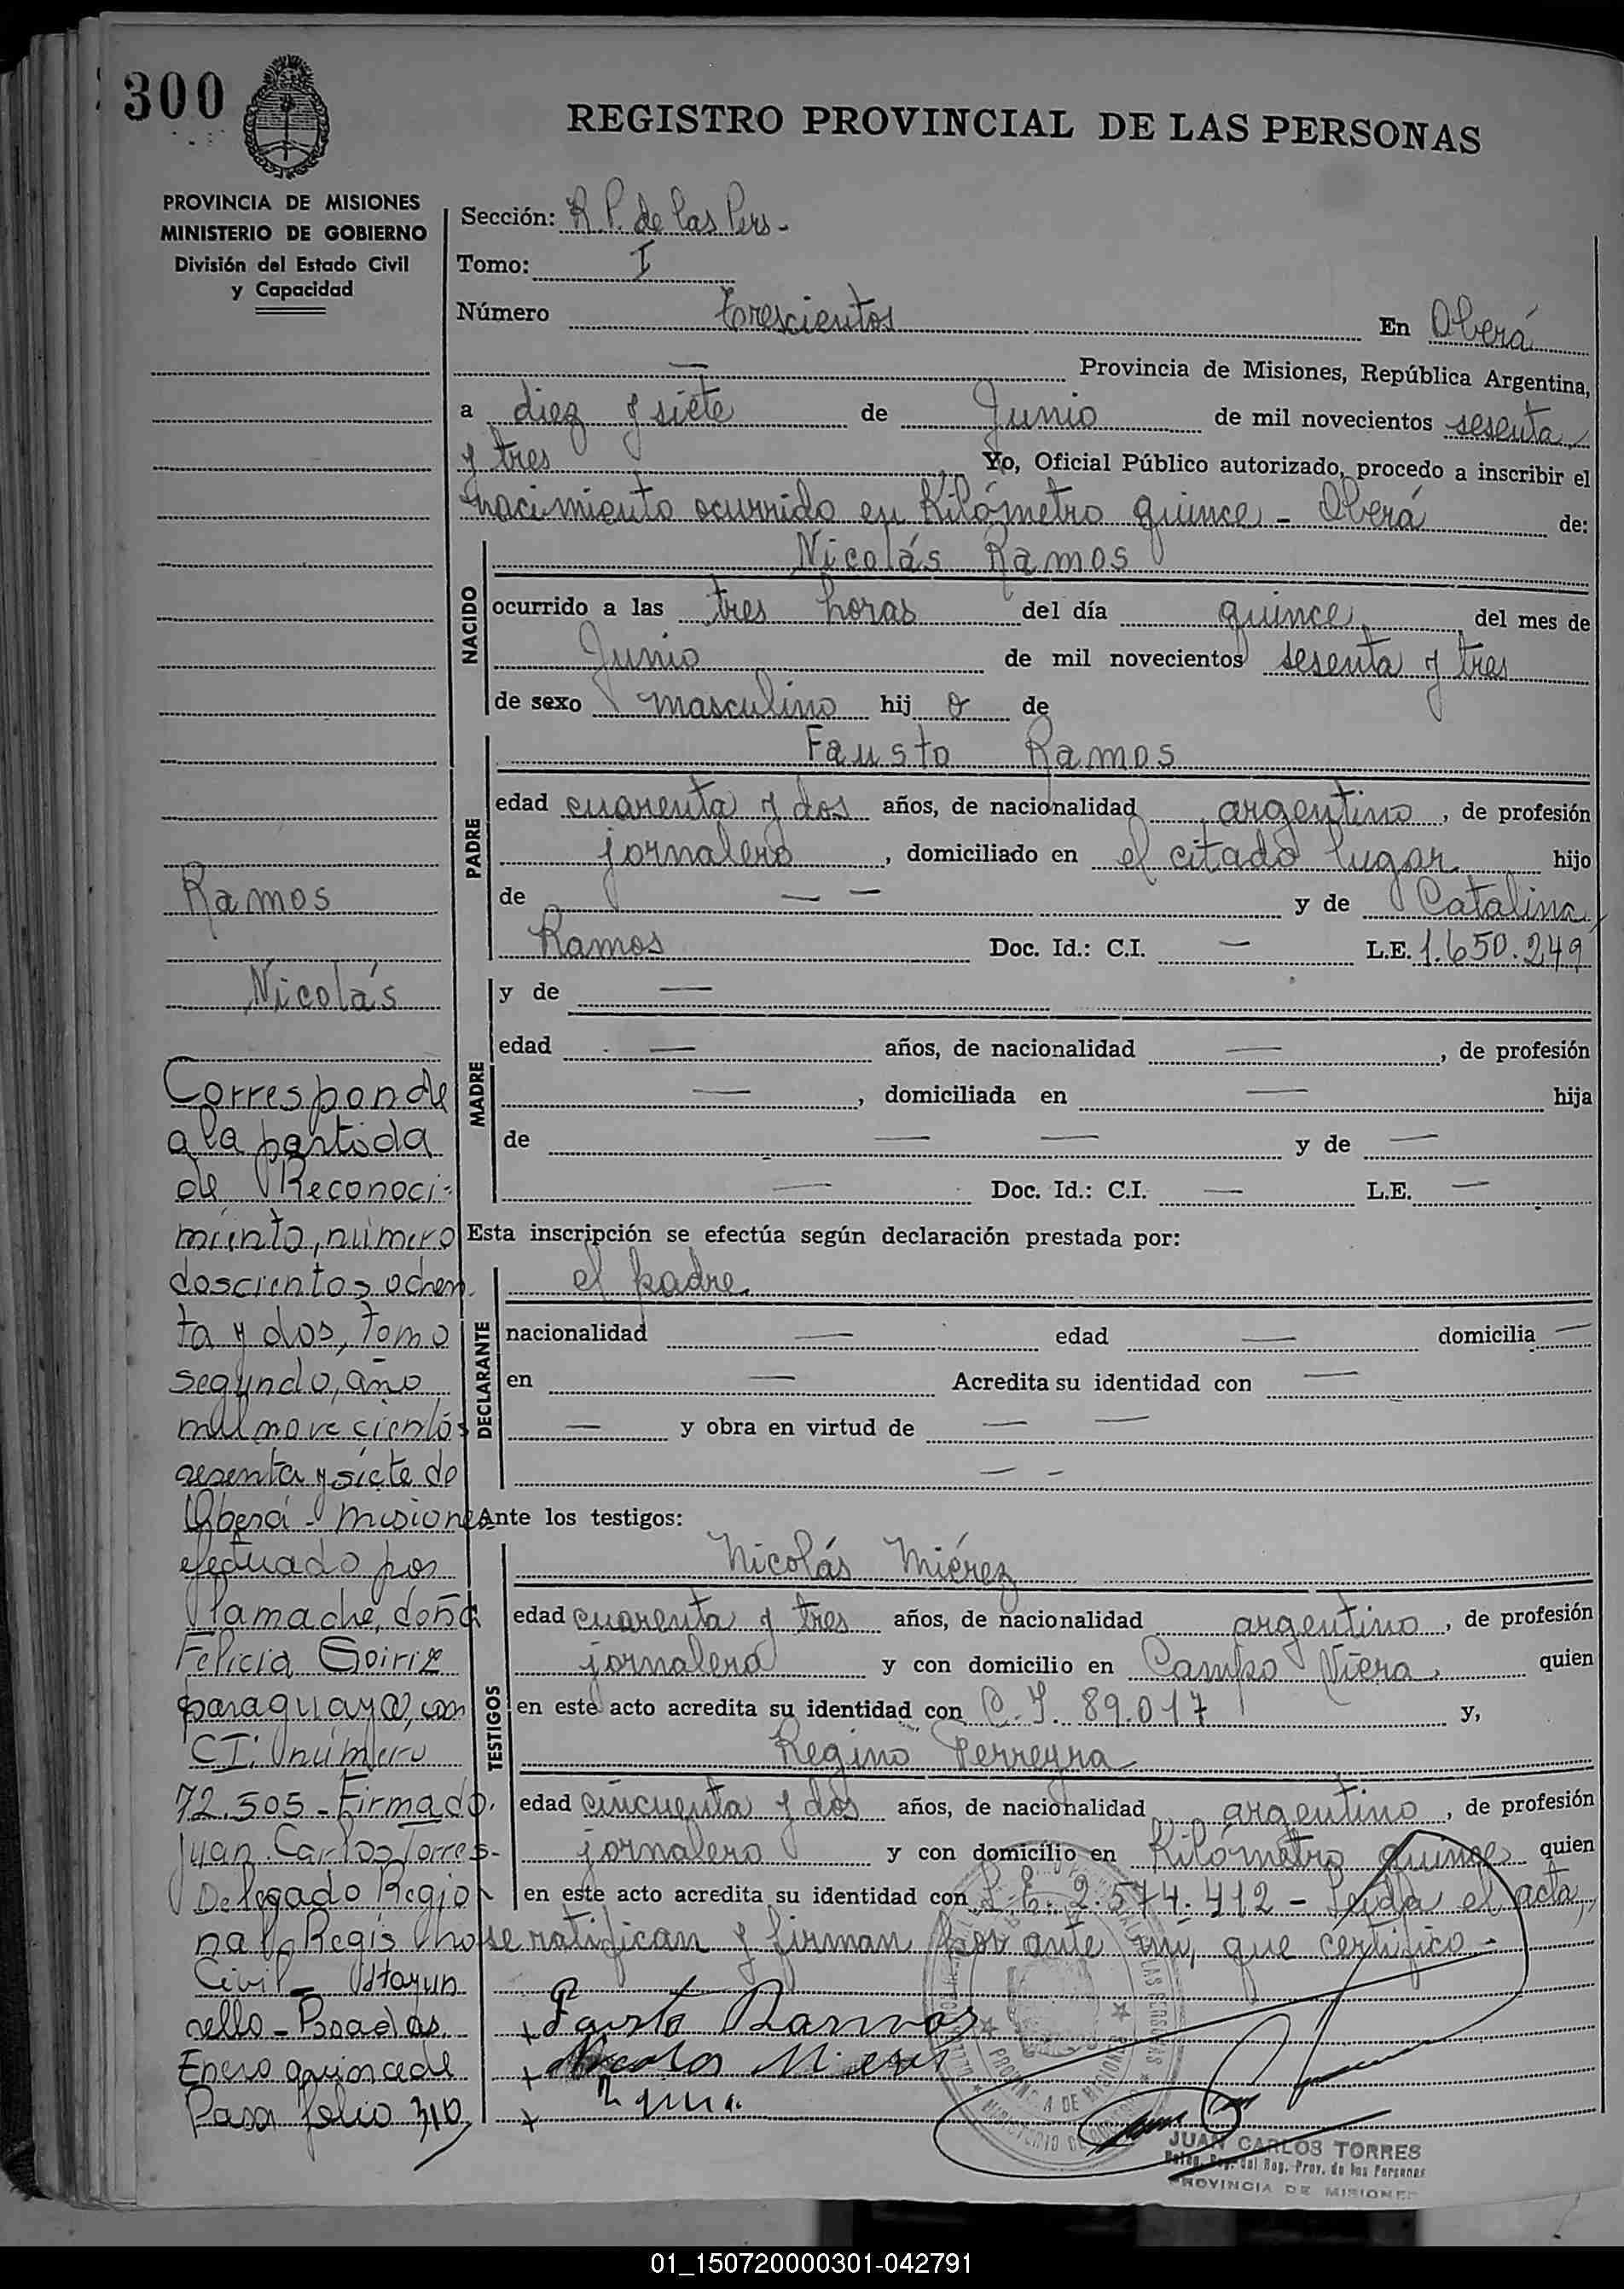 300
REGISTRO PROVINCIAL DE LAS PERSONAS
PROVINCIA DE MISIONES
MINISTERIO DE GOBIERNO
División del Estado Civil
y Capacidad
Sección: R.P. de las Pers-
Tomo: I
Número Trescientos En Oberá
— Provincia de Misiones, República Argentina,
a diez y siete de Junio de mil novecientos sesenta
y tres Yo, Oficial Público autorizado, procedo a inscribir el
nacimiento ocurrido en Kilómetro quince - Oberá de:
NACIDO
Nicolás Ramos
ocurrido a las tres horas del día quince del mes de
Junio de mil novecientos sesenta y tres
de sexo masculino hij o de
PADRE
Fausto Ramos
edad cuarenta y dos años, de nacionalidad argentino, de profesión
jornalero, domiciliado en el citado lugar hijo
de — — y de Catalina
Ramos Doc. Id.: C.I. — L.E. 1.650.249
MADRE
y de —
edad — años, de nacionalidad —, de profesión
—, domiciliada en — hija
de — — y de —
— Doc. Id.: C.I. — L.E. —
Esta inscripción se efectúa según declaración prestada por:
DECLARANTE
el padre
nacionalidad — edad — domicilia —
en — Acredita su identidad con —
— y obra en virtud de — —
— -
Ante los testigos:
TESTIGOS
Nicolás Miérez
edad cuarenta y tres años, de nacionalidad argentino, de profesión
jornalero y con domicilio en Campo Viera, quien
en este acto acredita su identidad con C.I. 89.017 y,
Regino Ferreyra
edad cincuenta y dos años, de nacionalidad argentino, de profesión
jornalero y con domicilio en Kilómetro quince quien
en este acto acredita su identidad con L.E. 2.574.412 - Leída el acta,
se ratifican y firman por ante mí, que certifico-
Fausto Ramos
Nicolas Mierez
JUAN CARLOS TORRES
Deleg. Reg. del Reg. Prov. de las Personas
PROVINCIA DE MISIONES
Ramos
Nicolás
Corresponde
a la partida
de Reconoci-
miento, número
doscientos ochen
ta y dos, Tomo
segundo, año
mil novecientos
sesenta y siete de
Oberá - Misiones
efectuado por
la madre, doña
Felicia Goiriz
paraguaya, con
CI. número
72.505 - Firmado.
Juan Carlos Torres-
Delegado Regio
nal Regis
Civil -
Posadas
Enero quince de
Pasa folio 310
01_150720000301-042791